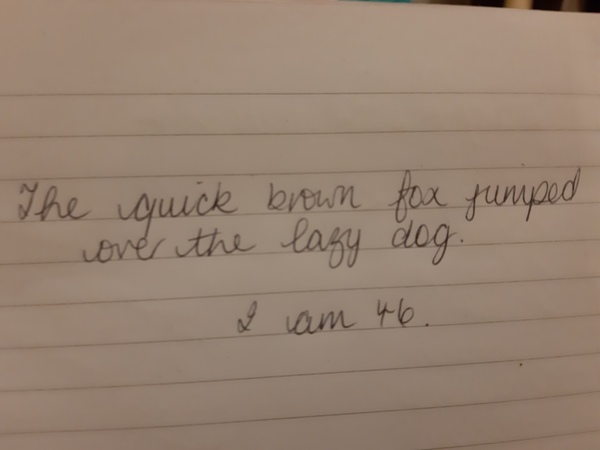 The quick brown fox jumped
over the lazy dog.
I am 46.